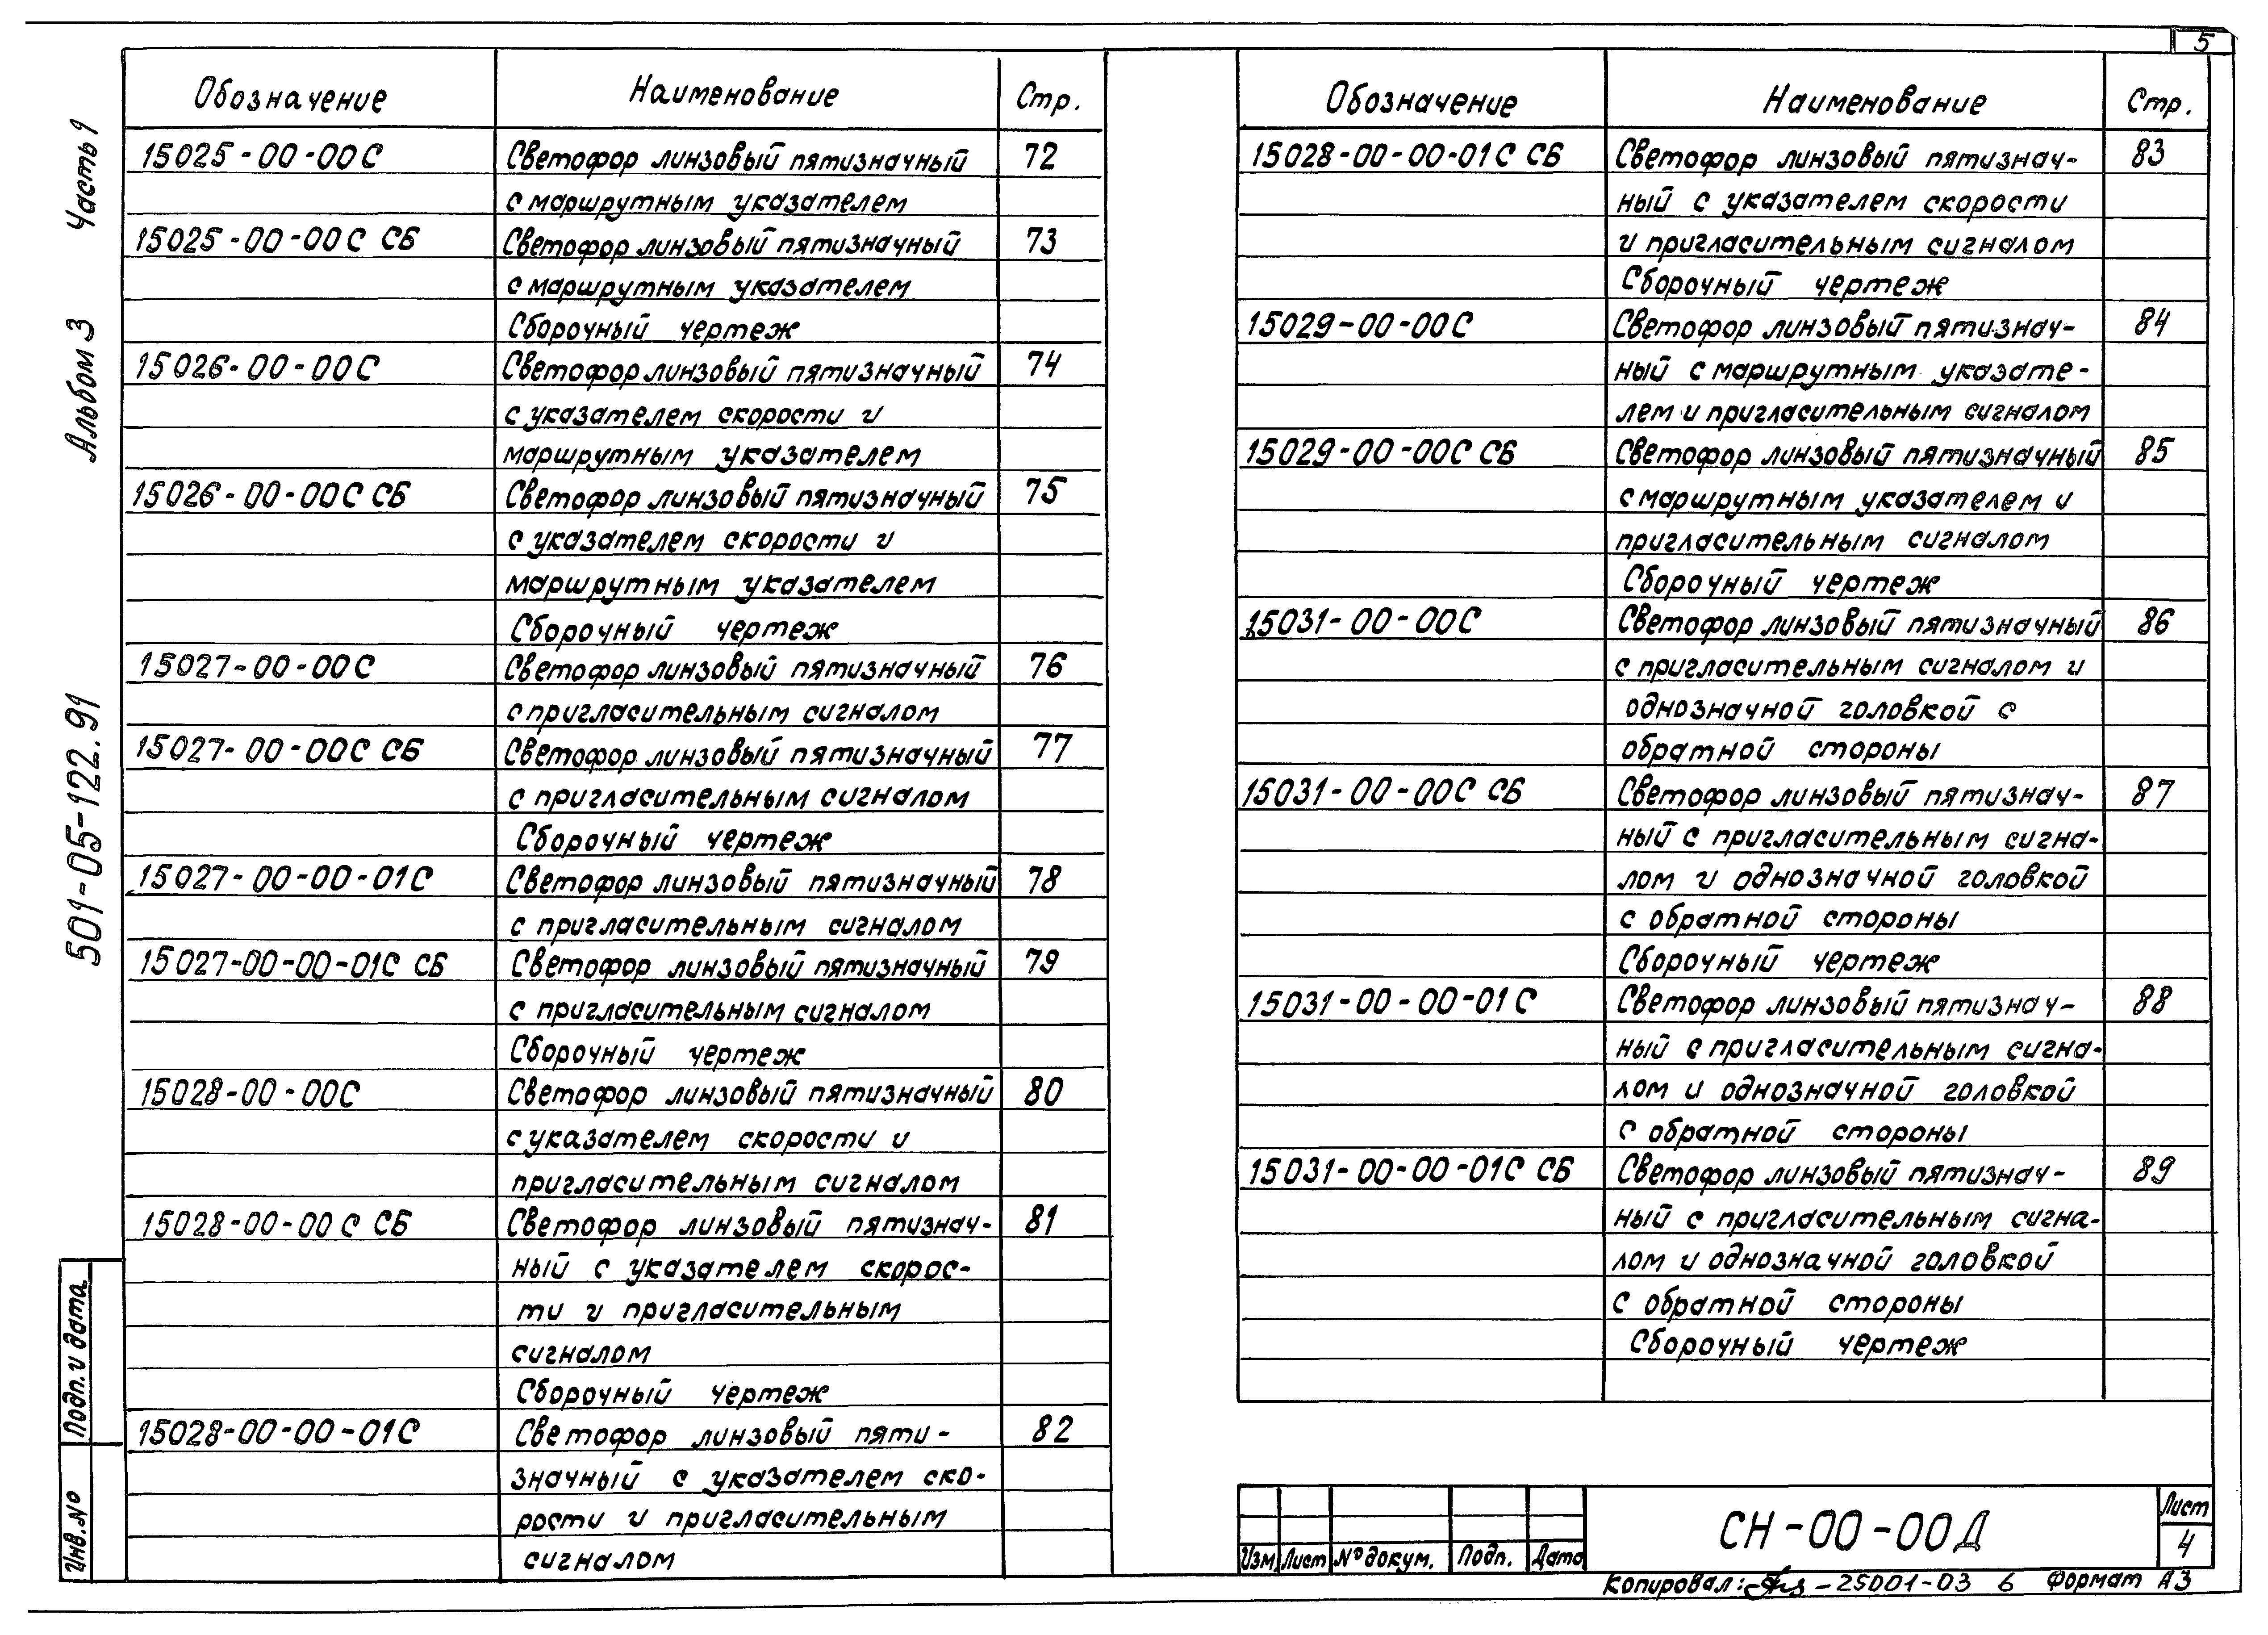 5
Часть 1
Альбом 3
501-05-122.91
Подп. и дата
Инв. №
Обозначение Наименование Стр.
15025-00-00С Светофор линзовый пятизначный 72
с маршрутным указателем
15025-00-00С СБ Светофор линзовый пятизначный 73
с маршрутным указателем
Сборочный чертеж
15026-00-00С Светофор линзовый пятизначный 74
с указателем скорости и
маршрутным указателем
15026-00-00С СБ Светофор линзовый пятизначный 75
с указателем скорости и
маршрутным указателем
Сборочный чертеж
15027-00-00С Светофор линзовый пятизначный 76
с пригласительным сигналом
15027-00-00С СБ Светофор линзовый пятизначный 77
с пригласительным сигналом
Сборочный чертеж
15027-00-00-01С Светофор линзовый пятизначный 78
с пригласительным сигналом
15027-00-00-01С СБ Светофор линзовый пятизначный 79
с пригласительным сигналом
Сборочный чертеж
15028-00-00С Светофор линзовый пятизначный 80
с указателем скорости и
пригласительным сигналом
15028-00-00С СБ Светофор линзовый пятизнач- 81
ный с указателем скорос-
ти и пригласительным
сигналом
Сборочный чертеж
15028-00-00-01С Светофор линзовый пяти- 82
значный с указателем ско-
рости и пригласительным
сигналом
Обозначение Наименование Стр.
15028-00-00-01С СБ Светофор линзовый пятизнач- 83
ный с указателем скорости
и пригласительным сигналом
Сборочный чертеж
15029-00-00С Светофор линзовый пятизнач- 84
ный с маршрутным указате-
лем и пригласительным сигналом
15029-00-00С СБ Светофор линзовый пятизначный 85
с маршрутным указателем и
пригласительным сигналом
Сборочный чертеж
15031-00-00С Светофор линзовый пятизначный 86
с пригласительным сигналом и
однозначной головкой с
обратной стороны
15031-00-00С СБ Светофор линзовый пятизнач- 87
ный с пригласительным сигна-
лом и однозначной головкой
с обратной стороны
Сборочный чертеж
15031-00-00-01С Светофор линзовый пятизнач- 88
ный с пригласительным сигна-
лом и однозначной головкой
с обратной стороны
15031-00-00-01С СБ Светофор линзовый пятизнач- 89
ный с пригласительным сигна-
лом и однозначной головкой
с обратной стороны
Сборочный чертеж
Изм. Лист № докум. Подп. Дата
СН-00-00Д
Лист
4
Копировал: -25001-03 6 Формат А3